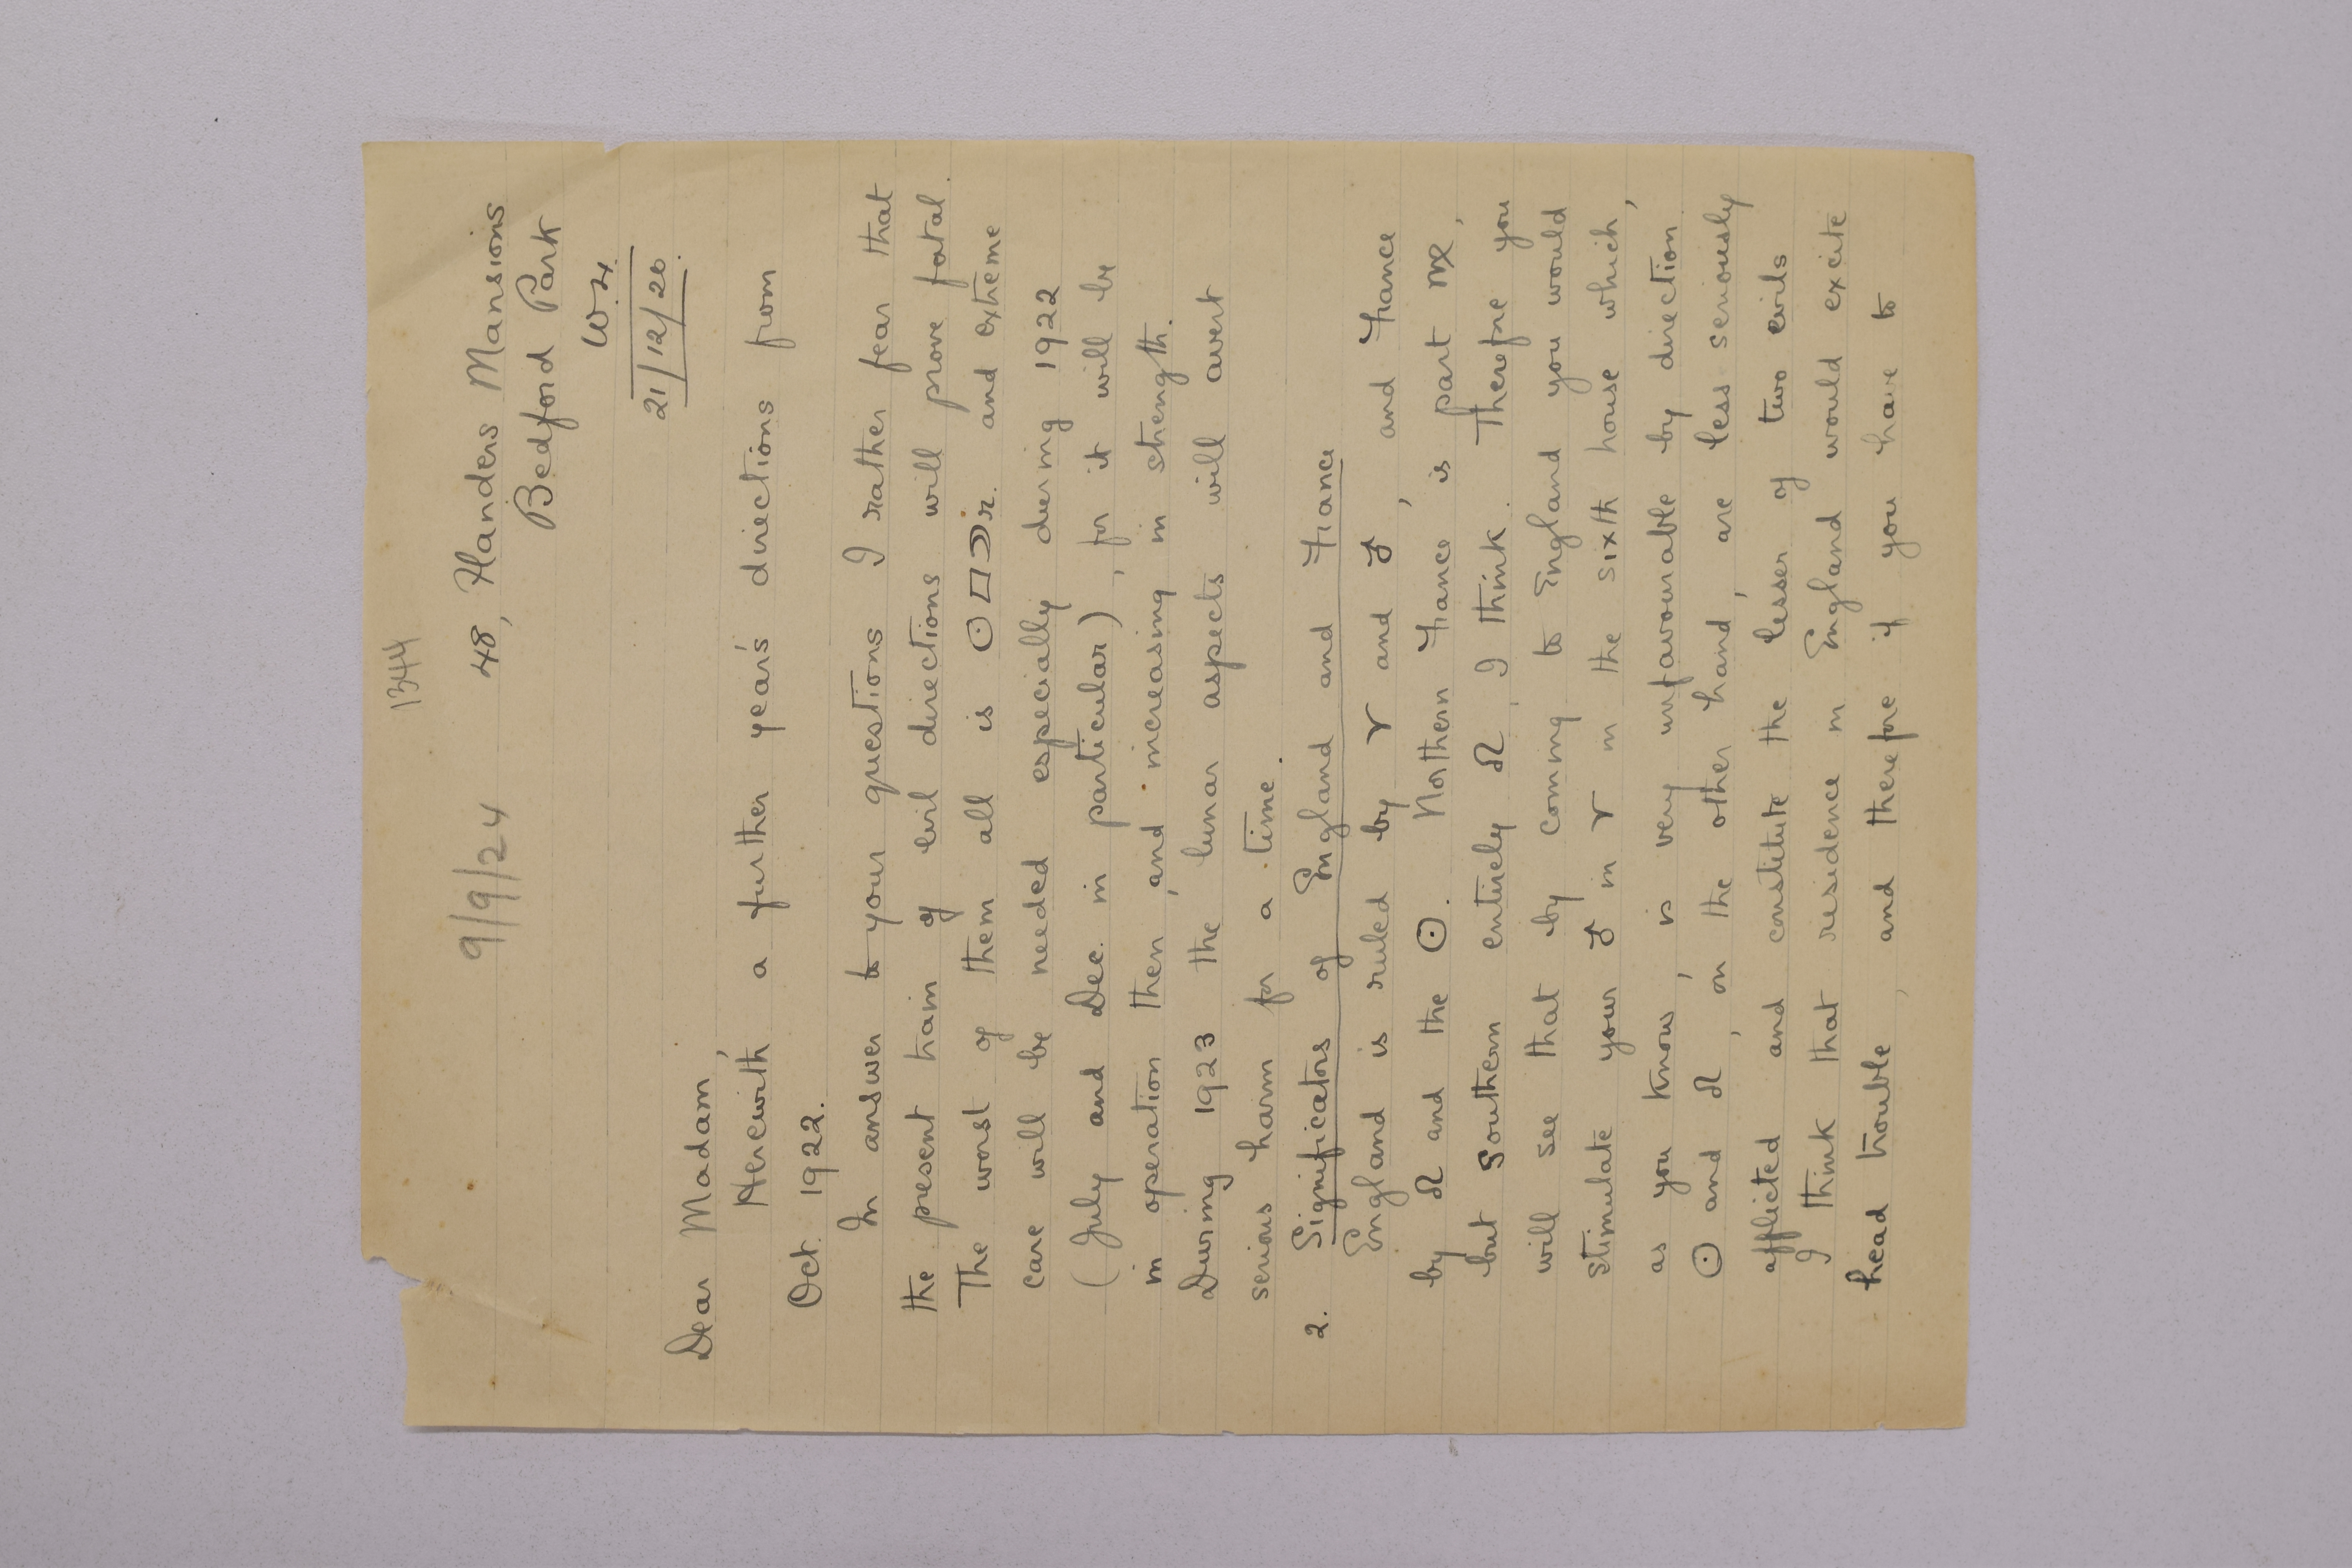 1344
9/9/24
48, Flanders Mansions
Bedford Park
W.4.
21/12/20.
Dear Madam,
Herewith a further year's directions from
Oct. 1922.
In answer to your questions I rather fear that
the present train of evil directions will prove fatal.
The worst of them all is ☉□☽r. and extreme
care will be needed especially during 1922
(July and Dec. in particular), for it will be
in operation then, and increasing in strength.
During 1923 the lunar aspects will avert
serious harm for a time.
2. Significators of England and France
England is ruled by ♈ and ♂, and France
by ♌ and the ☉. Northern France is part ♍,
but Southern entirely ♌, I think. Therefore you
will see that by coming to England you would
stimulate your ♂ in ♈ in the sixth house which,
as you know, is very unfavourable by direction.
☉ and ♌, on the other hand, are less seriously
afflicted and constitute the lesser of two evils
I think that residence in England would excite
head trouble, and therefore if you have to